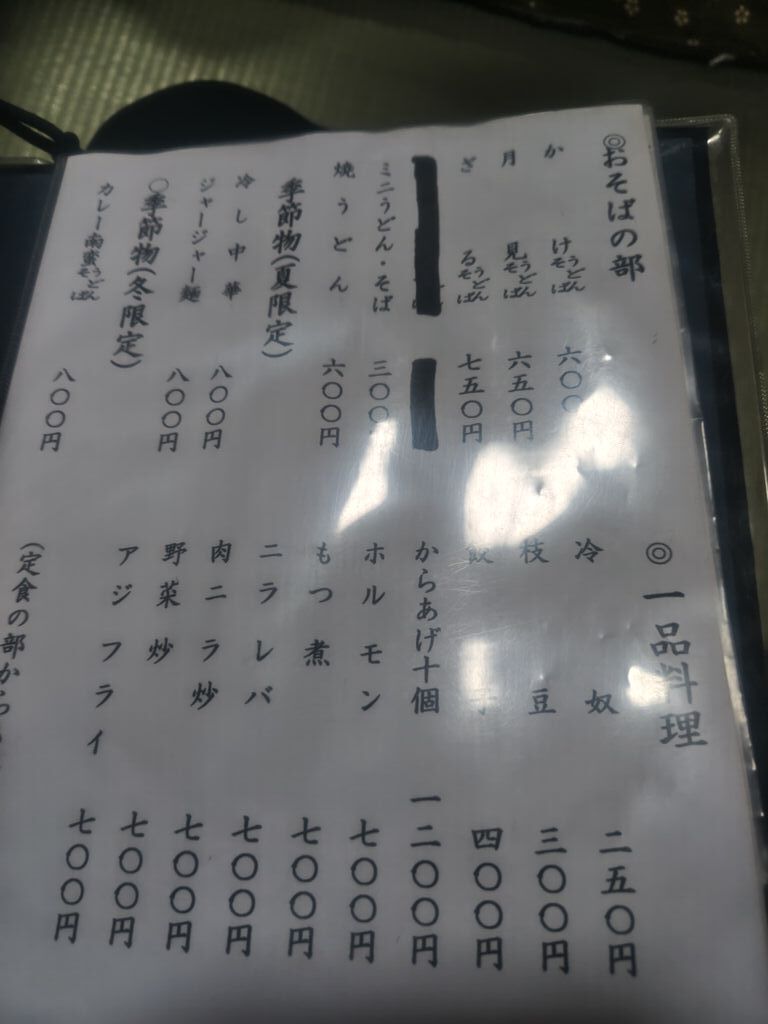 ◎おそばの部
かけうどんそば 六〇〇
月見うどんそば 六五〇円
ざるうどんそば 七五〇円
ミニうどん・そば 三〇〇
焼うどん 六〇〇円
季節物(夏限定)
冷し中華 八〇〇円
ジャージャー麺 八〇〇円
〇季節物(冬限定)
カレー南蛮うどんそば 八〇〇円
◎一品料理
冷奴 二五〇円
枝豆 三〇〇円
餃子 四〇〇円
からあげ十個 一二〇〇円
ホルモン 七〇〇円
もつ煮 七〇〇円
ニラレバ 七〇〇円
肉ニラ炒 七〇〇円
野菜炒 七〇〇円
アジフライ 七〇〇円
(定食の部から